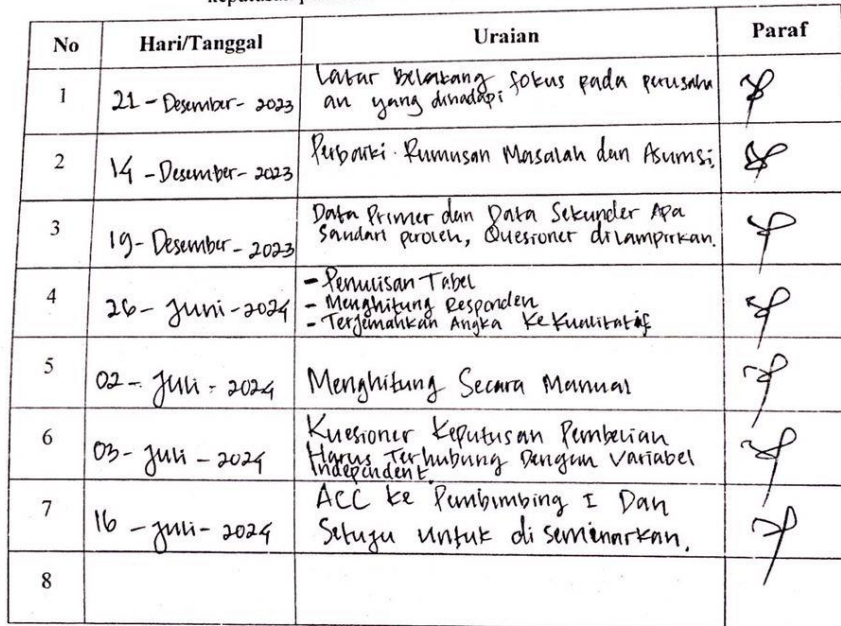 No Hari/Tanggal Uraian Paraf
1 21 - Desember - 2023 Latar Belakang fokus pada perusaha
an yang dihadapi
2 14 - Desember - 2023 Perbaiki Rumusan Masalah dan Asumsi.
3 19 - Desember - 2023 Data Primer dan Data Sekunder Apa
Saudari peroleh, Quesioner dilampirkan.
4 26 - Juni - 2024 - Penulisan Tabel
- Menghitung Responden
- Terjemahkan Angka Ke Kualitatif
5 02 - Juli - 2024 Menghitung Secara Manual
6 03 - Juli - 2024 Kuesioner Keputusan Pembelian
Harus Terhubung Dengan Variabel
Independent.
7 16 - Juli - 2024 ACC ke Pembimbing I Dan
Setuju untuk di seminarkan.
8